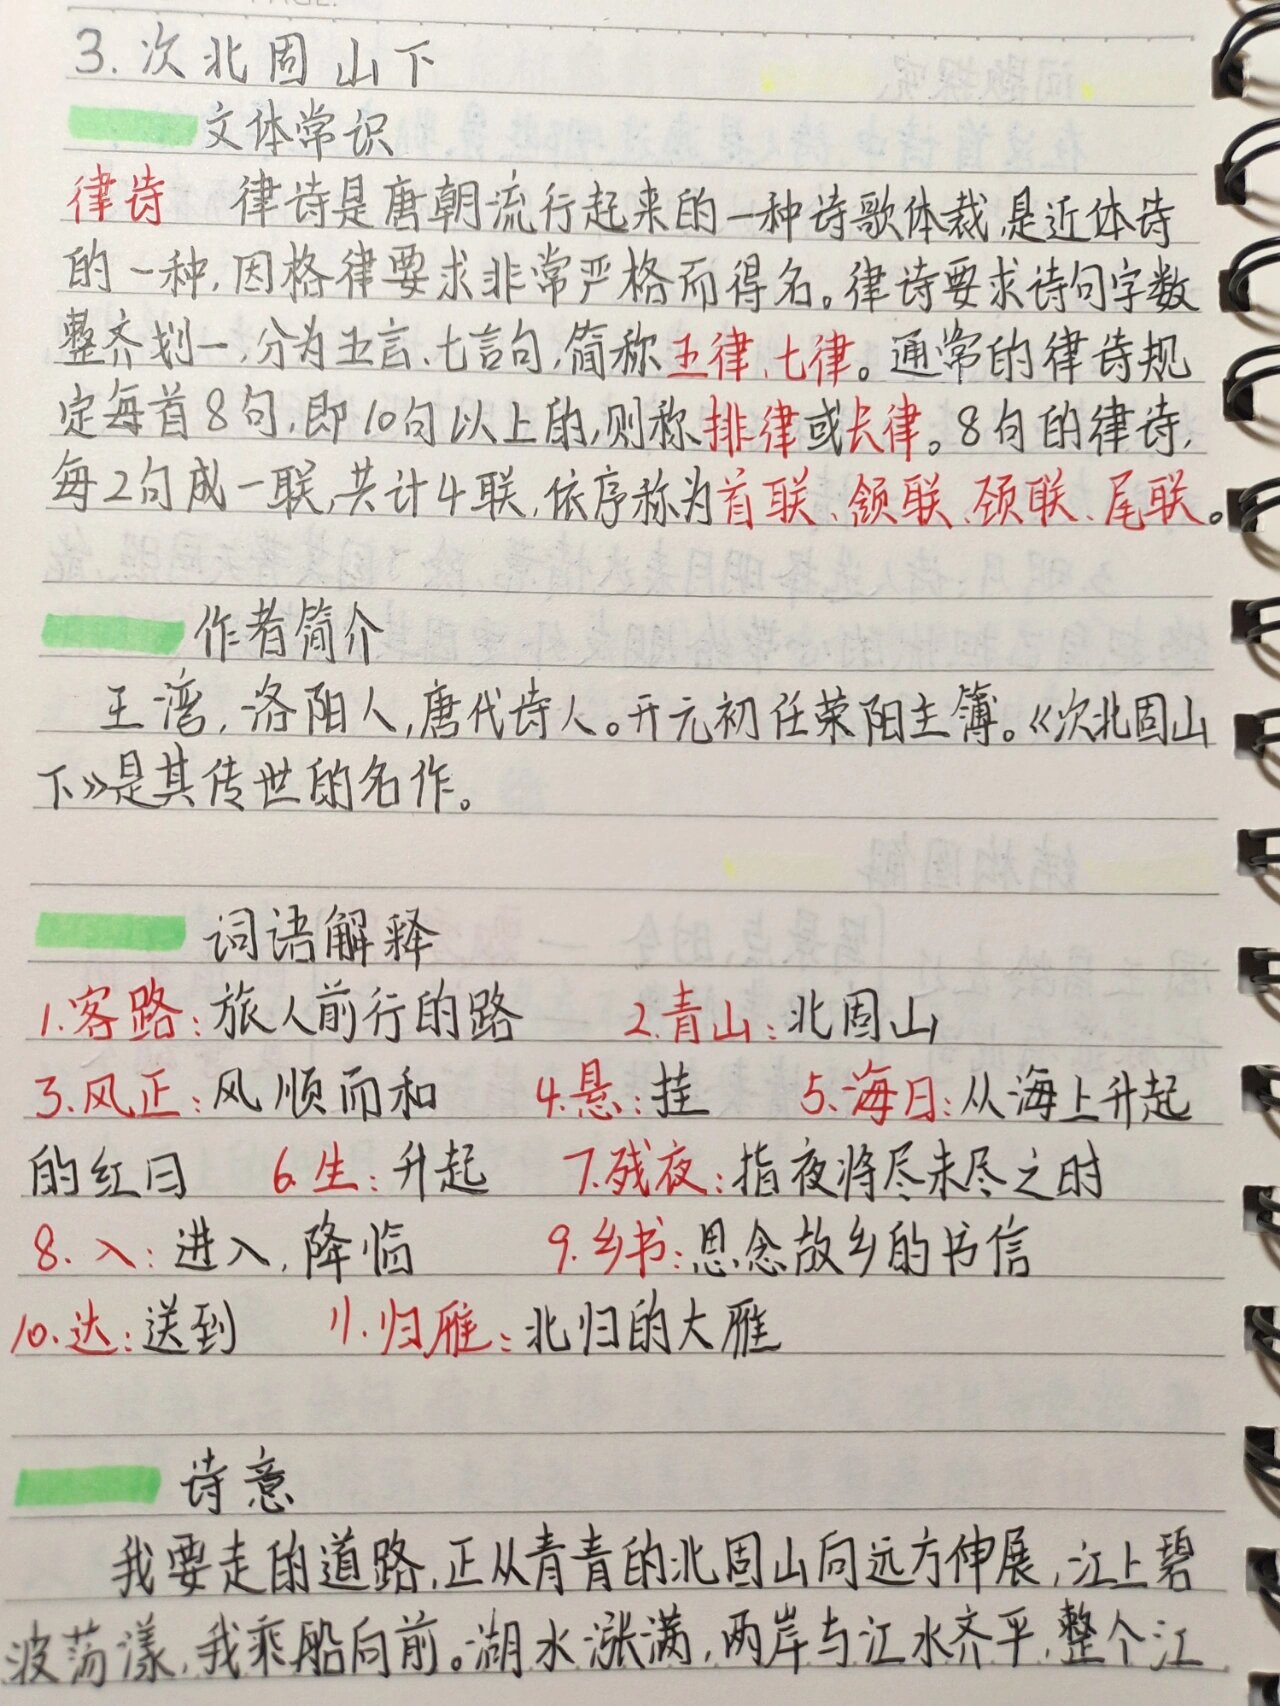 PAGE:
3. 次北固山下
文体常识
律诗 律诗是唐朝流行起来的一种诗歌体裁,是近体诗
的一种,因格律要求非常严格而得名。律诗要求诗句字数
整齐划一,分为五言、七言句,简称五律、七律。通常的律诗规
定每首8句,即10句以上的,则称排律或长律。8句的律诗,
每2句成一联,共计4联,依序称为首联、颔联、颈联、尾联。
作者简介
王湾,洛阳人,唐代诗人。开元初任荣阳主簿。《次北固山
下》是其传世的名作。
词语解释
1.客路:旅人前行的路 2.青山:北固山
3.风正:风顺而和 4.悬:挂 5.海日:从海上升起
的红日 6.生:升起 7.残夜:指夜将尽未尽之时
8.入:进入,降临 9.乡书:思念故乡的书信
10.达:送到 11.归雁:北归的大雁
诗意
我要走的道路,正从青青的北固山向远方伸展,江上碧
波荡漾,我乘船向前。湖水涨满,两岸与江水齐平,整个江